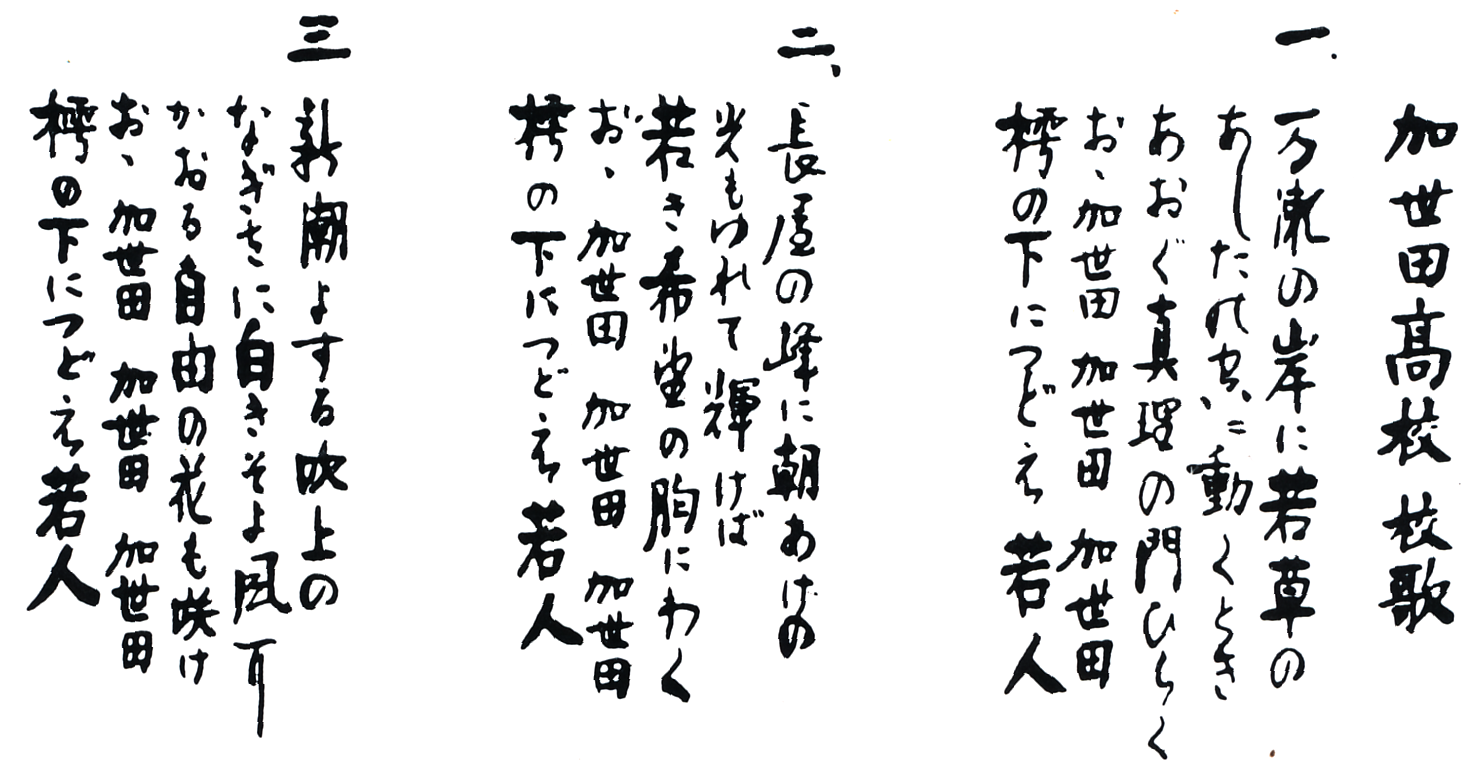 加世田高校 校歌
一.
万瀬の岸に若草の
あしたの に動くとき
あおぐ真理の門ひらく
おゝ加世田 加世田 加世田
樗の下につどえ若人
二、
長屋の峰に朝あけの
光もゆれて輝けば
若き希望の胸にわく
おゝ 加世田 加世田 加世田
樗の下につどえ若人
三
新潮よする吹上の
なぎさに白きそよ風耳
かおる自由の花も咲け
おゝ 加世田 加世田 加世田
樗の下につどえ若人